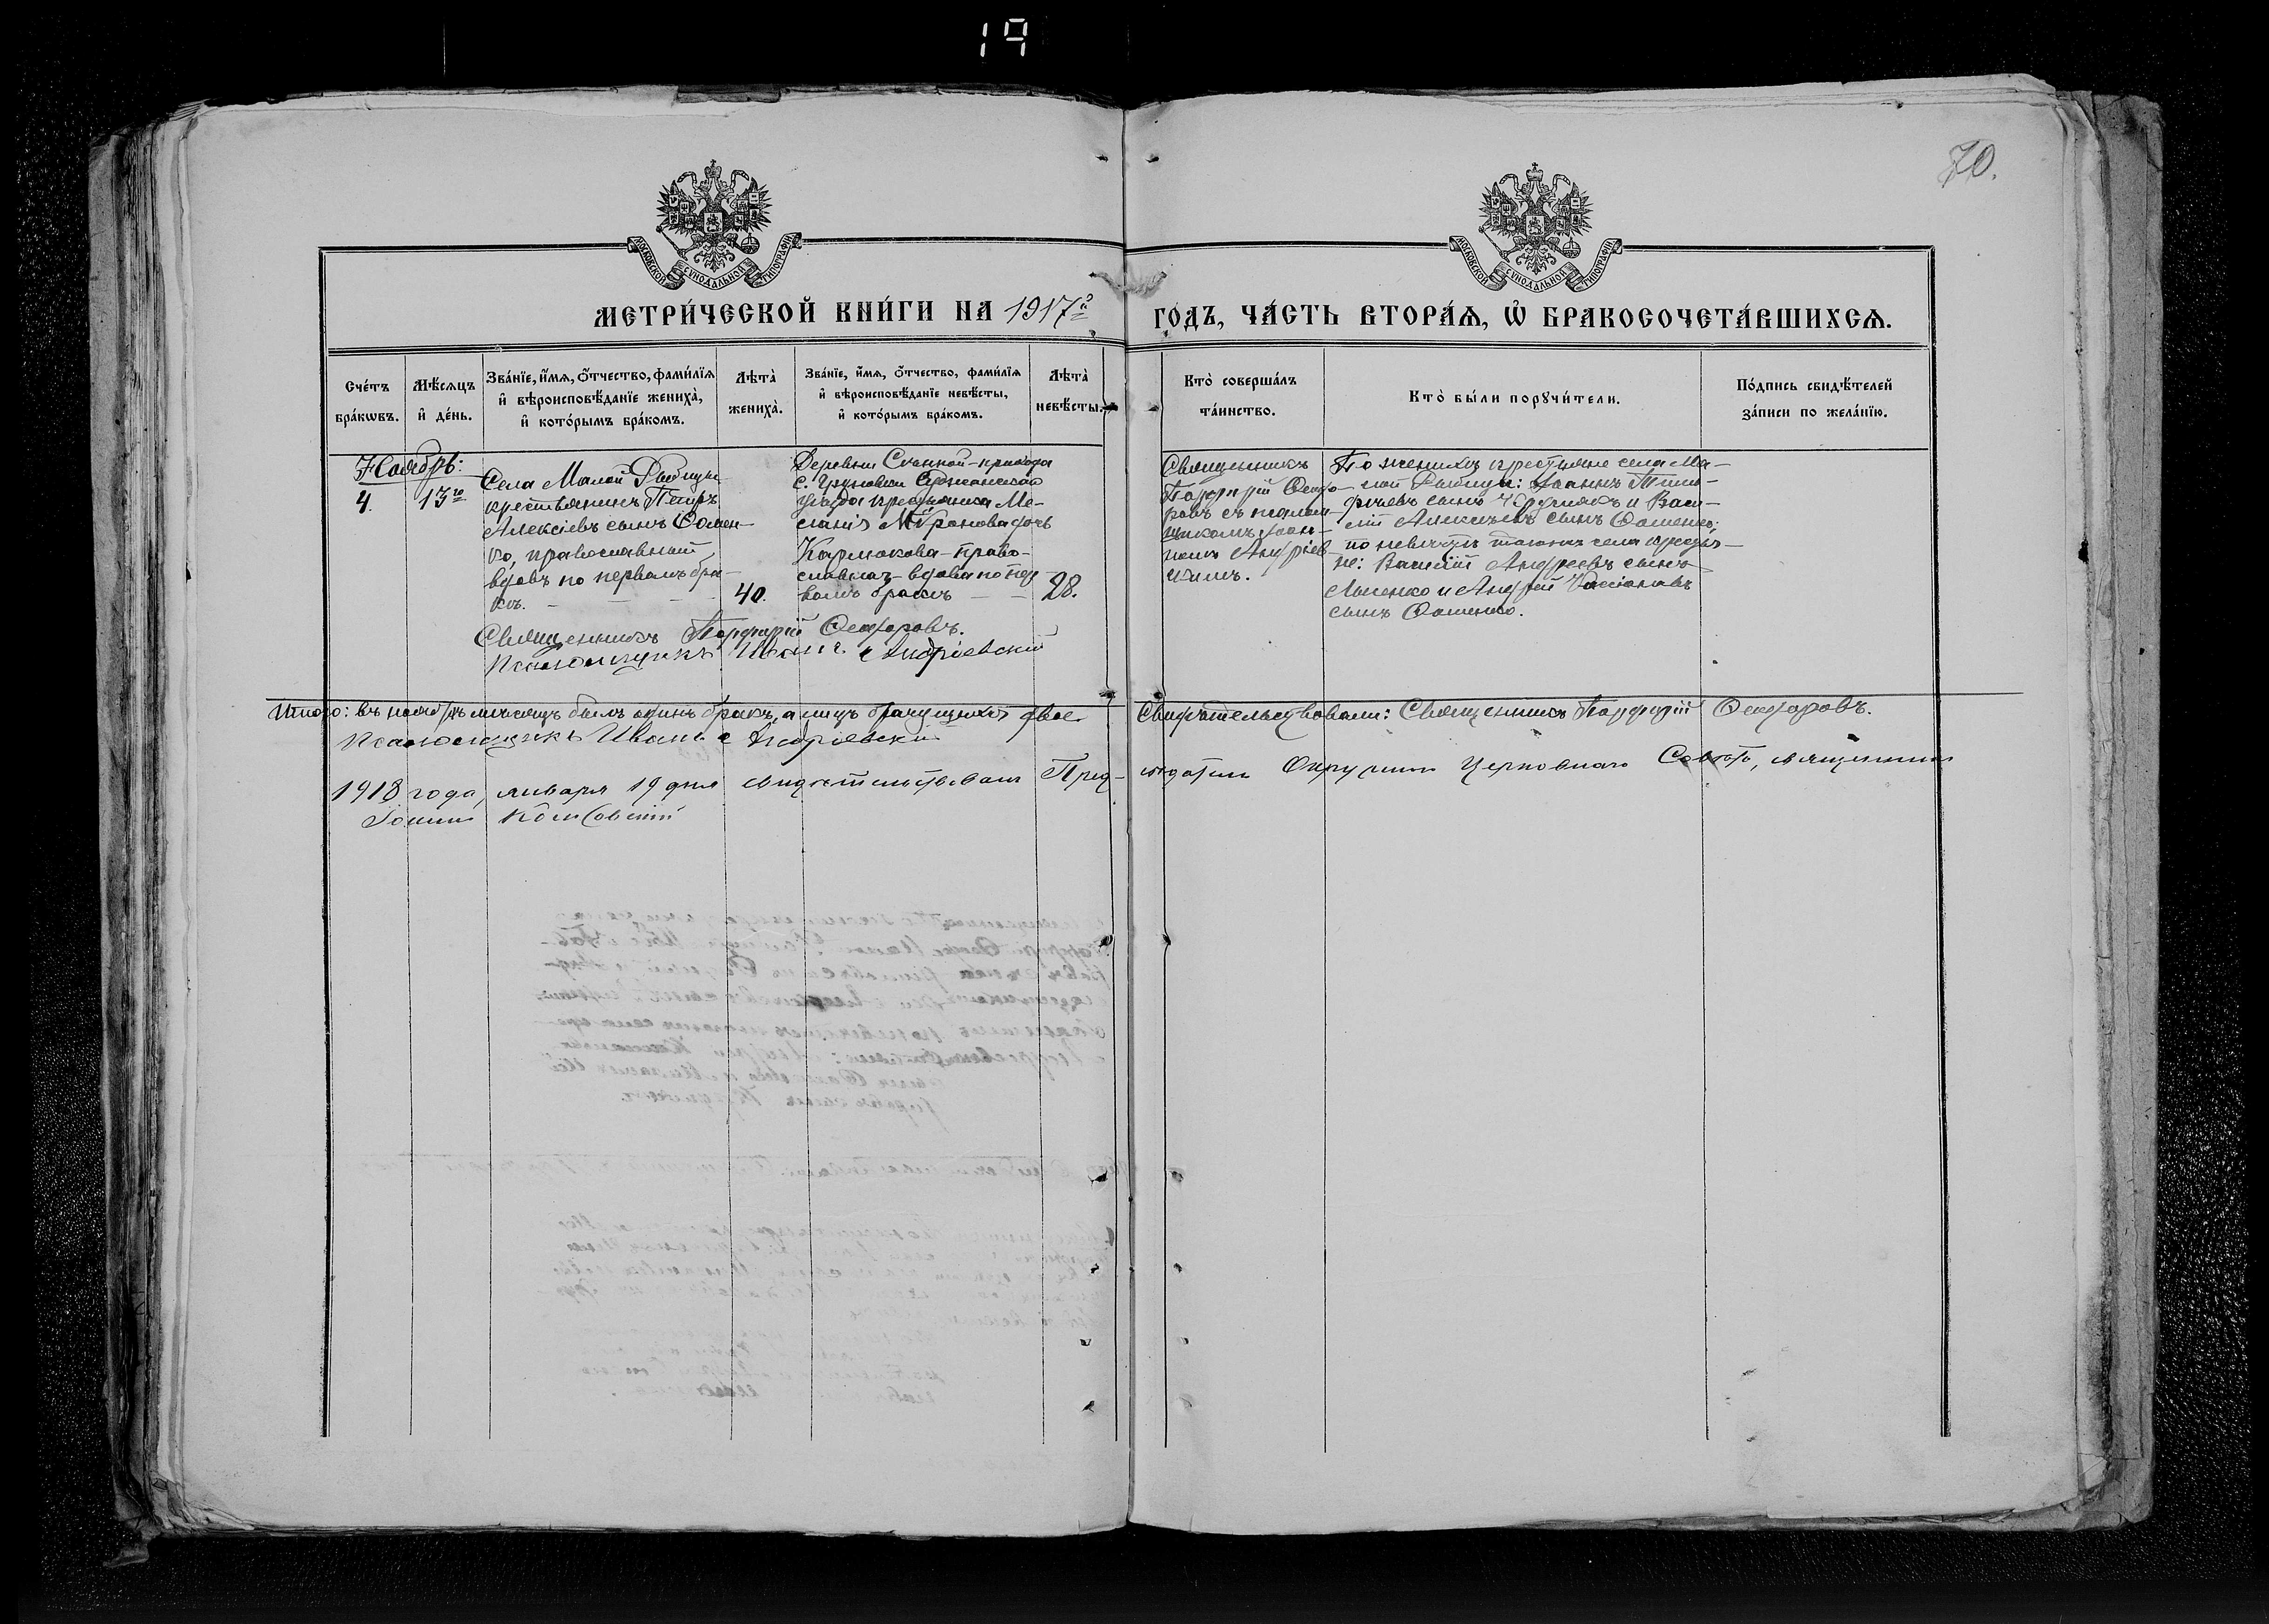 19
70.
МОСКОВСКОЙ СУНОДАЛЬНОЙ ТИПОГРАФІИ
МОСКОВСКОЙ СУНОДАЛЬНОЙ ТИПОГРАФІИ
МЕТРИ́ЧЕСКОЙ КНИ́ГИ НА 1917й ГОДЪ, ЧА́СТЬ ВТОРА́Ѧ, Ѽ БРАКОСОЧЕТА́ВШИХСѦ.
Сче́тъ бра́кѡвъ.
Мѣ́сѧцъ и҆ де́нь.
Зва́нїе, и҆́мѧ, ѻ҆́тчество, фами́лїѧ и҆ вѣроисповѣ́данїе жениха̀, и҆ кото́рымъ бра́комъ.
Лѣта̀ жениха̀.
Зва́нїе, и҆́мѧ, ѻ҆́тчество, фами́лїѧ и҆ вѣроисповѣ́данїе невѣ́сты, и҆ кото́рымъ бра́комъ.
Лѣта̀ невѣ́сты.
Кто̀ соверша́лъ та́инство.
Кто̀ бы́ли порꙋчи́тели.
По́дпись свидѣ́телей за́писи по жела́нїю.
Ноябрь:
4.
13го
Села Малой Рыбицы
крестьянинъ Петръ
Алексіевъ сынъ Ѳомен-
ко, православный,
вдовъ по первомъ бра-
кѣ.
40.
Деревни Сѣнной - прихода
с. Груновки Суджанскаго
уѣзда крестьянка Ме-
ланія Миронова дочь
Кармокова - право-
славная - вдова по пер-
вомъ бракѣ
28.
Священникъ
Порфирій Ѳеодо-
ровъ съ псалом-
щикомъ Іоан-
номъ Андріев-
скимъ.
По женихѣ крестьяне села Ма-
лой Рыбицы: Іоаннъ Тимо-
феевъ сынъ и Васи-
лій Алексѣевъ сынъ Ѳоменко;
по невѣстѣ тогожъ села крестья-
не: Василій Андреевъ сынъ
Лысенко и Андрей Кассіановъ
сынъ Ѳоменко.
Священникъ Порфирій Ѳеодоровъ.
Псаломщикъ Иванъ Андріевскій
Итого: въ ноябрѣ мѣсяцѣ былъ одинъ бракъ, а лицъ брачущихся двое. Свидѣтельствовали: Священникъ Порфирій Ѳеодоровъ.
Псаломщикъ Иванъ Андріевскій
1918 года, января 19 дня свидѣтельствовалъ Предсѣдатель Окружнаго Церковнаго Совѣта, священникъ
Іоаннъ